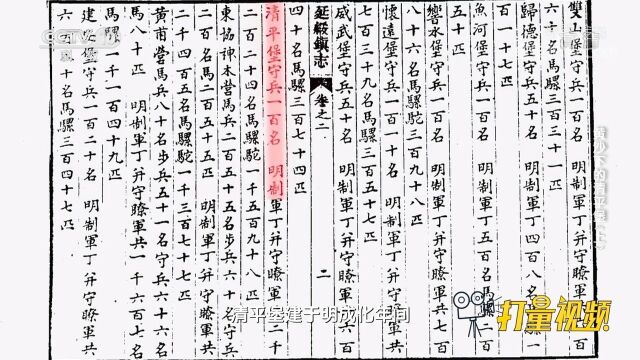 雙山堡守兵五十名 明制軍丁并守瞭軍共
六十名馬騾三百一十匹
歸德堡守兵五十名 明制軍丁四百八名馬騾二
百一十七匹
魚河堡守兵五十名 明制軍丁五百名馬騾二百
五十匹
響水堡守兵五十名 明制軍丁并守瞭軍共七百
八十六名馬騾三百九十八匹
懷遠堡守兵一百十名 明制軍丁并守瞭軍共
七百三十九名馬騾三百五十匹
威武堡守兵五十名 明制軍丁并守瞭軍共六百
延綏鎮志 卷之二 二
四十名馬騾三百七十四匹
清平堡守兵一百名 明制軍丁并守瞭軍二千
二百二十四名馬騾駝一千五百九十八匹
東協神木營馬兵二百五十五名步兵六十名守兵
二百名馬二百五十五匹 明制軍丁并守瞭軍
二千四百五名馬騾駝一千三百七十七匹
黃甫營馬兵八十名步兵五十一名守兵六十六名
馬八十匹 明制軍丁并守瞭軍共一千六百七名
馬騾一千一百四十九匹
建安堡守兵一百二十名 明制軍丁并守瞭軍共
六百四十名馬騾三百四十七匹
清平堡建于明成化年间
打量视频